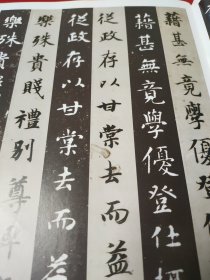 籍甚無竟學優
籍甚無竟學優登仕
從政存以甘棠去而益
從政存以甘棠去而益
樂殊貴賤禮別尊卑
樂殊貴